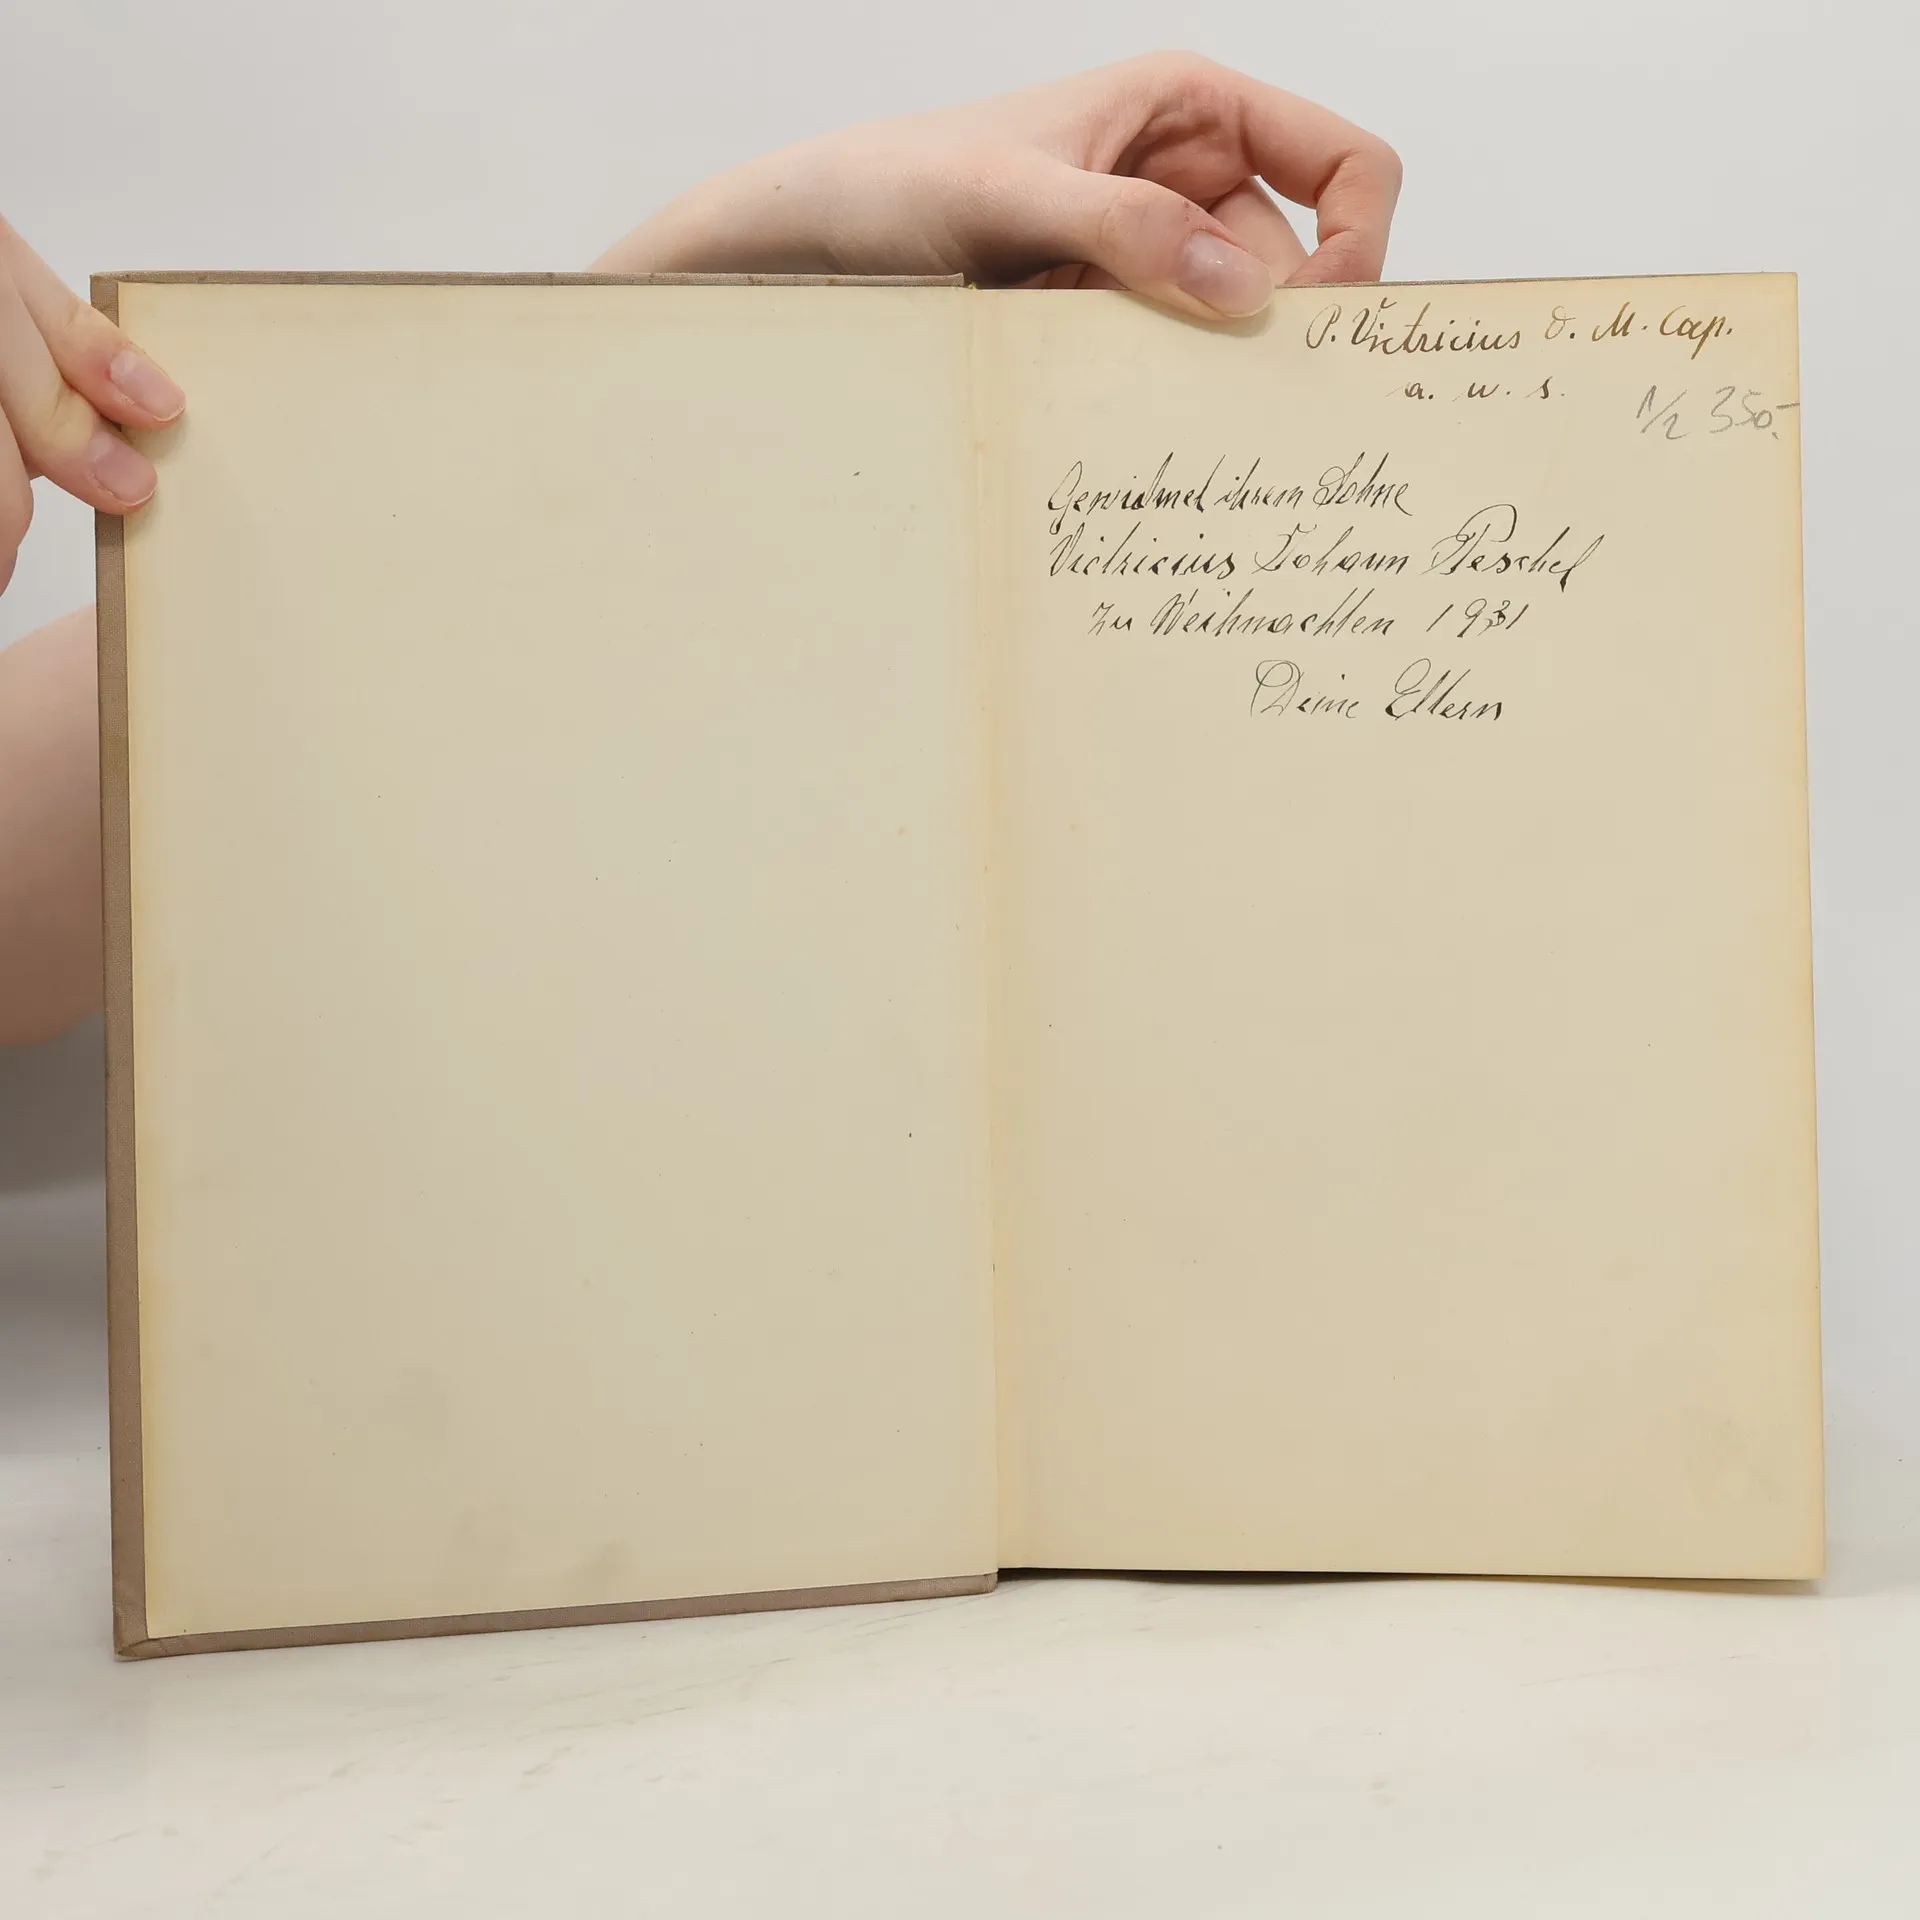 P. Victricius O. M. Cap.
a. u. s.
1/2 350.-
Gewidmet ihrem Sohne
Victricius Johann Peschel
zu Weihnachten 1931
Deine Eltern